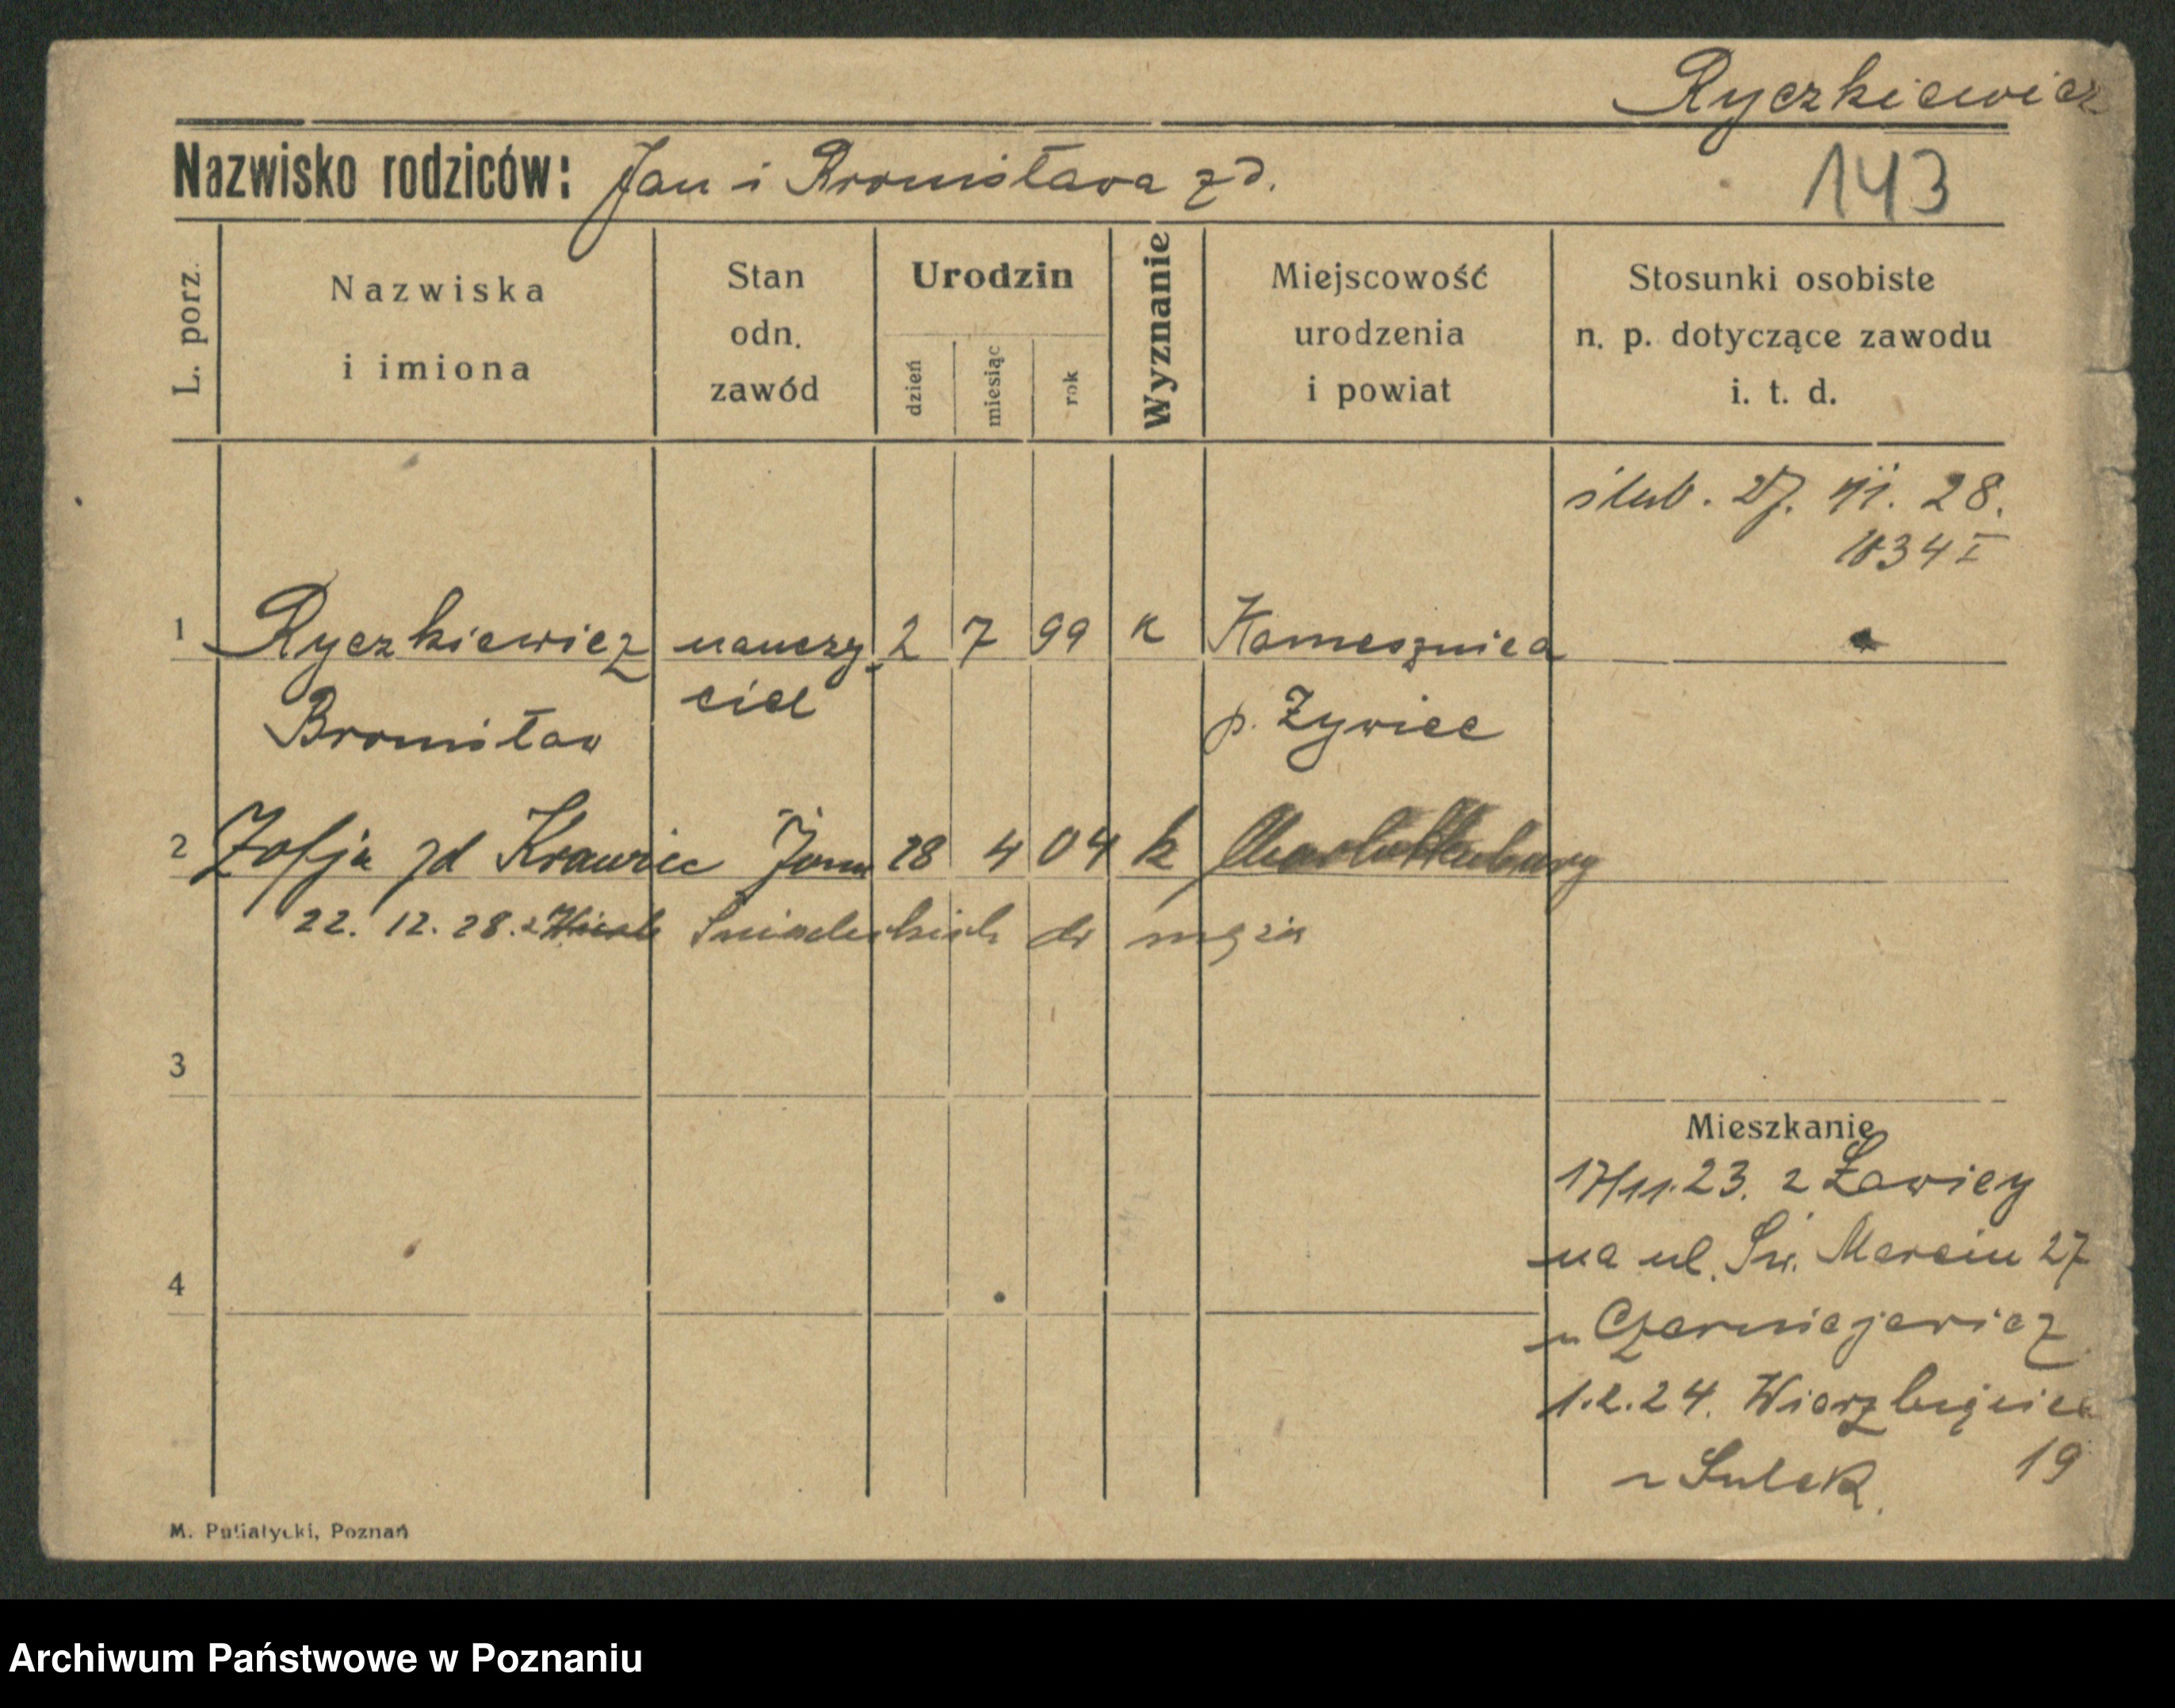 Ryczkiewicz
Nazwisko rodziców: Jan i Bronisława zd.
143
L. porz.
Nazwiska
i imiona
Stan
odn.
zawód
Urodzin
dzień
miesiąc
rok
Wyznanie
Miejscowość
urodzenia
i powiat
Stosunki osobiste
n. p. dotyczące zawodu
i. t. d.
ślub. 27. 28.
1 Ryczkiewicz nauczy 2 7 99 k Kamesznica
Bronisław ciel p. Żywiec
2 Zofja zd Krawiec żona 28 4 04 k Charlottenburg
22. 12. 28. z Śniadeckich do męża
3
4
Mieszkanie
17/11.23. z Ławicy
na ul. Św. Marcin 27
u Czarniejewicz
1.2.24. Wierzbięcice
19
u Sulek
M. Putiatycki, Poznań
Archiwum Państwowe w Poznaniu